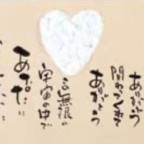 ありがとう
関わってくれて
ありがとう
この無限の
宇宙の中で
あなたに